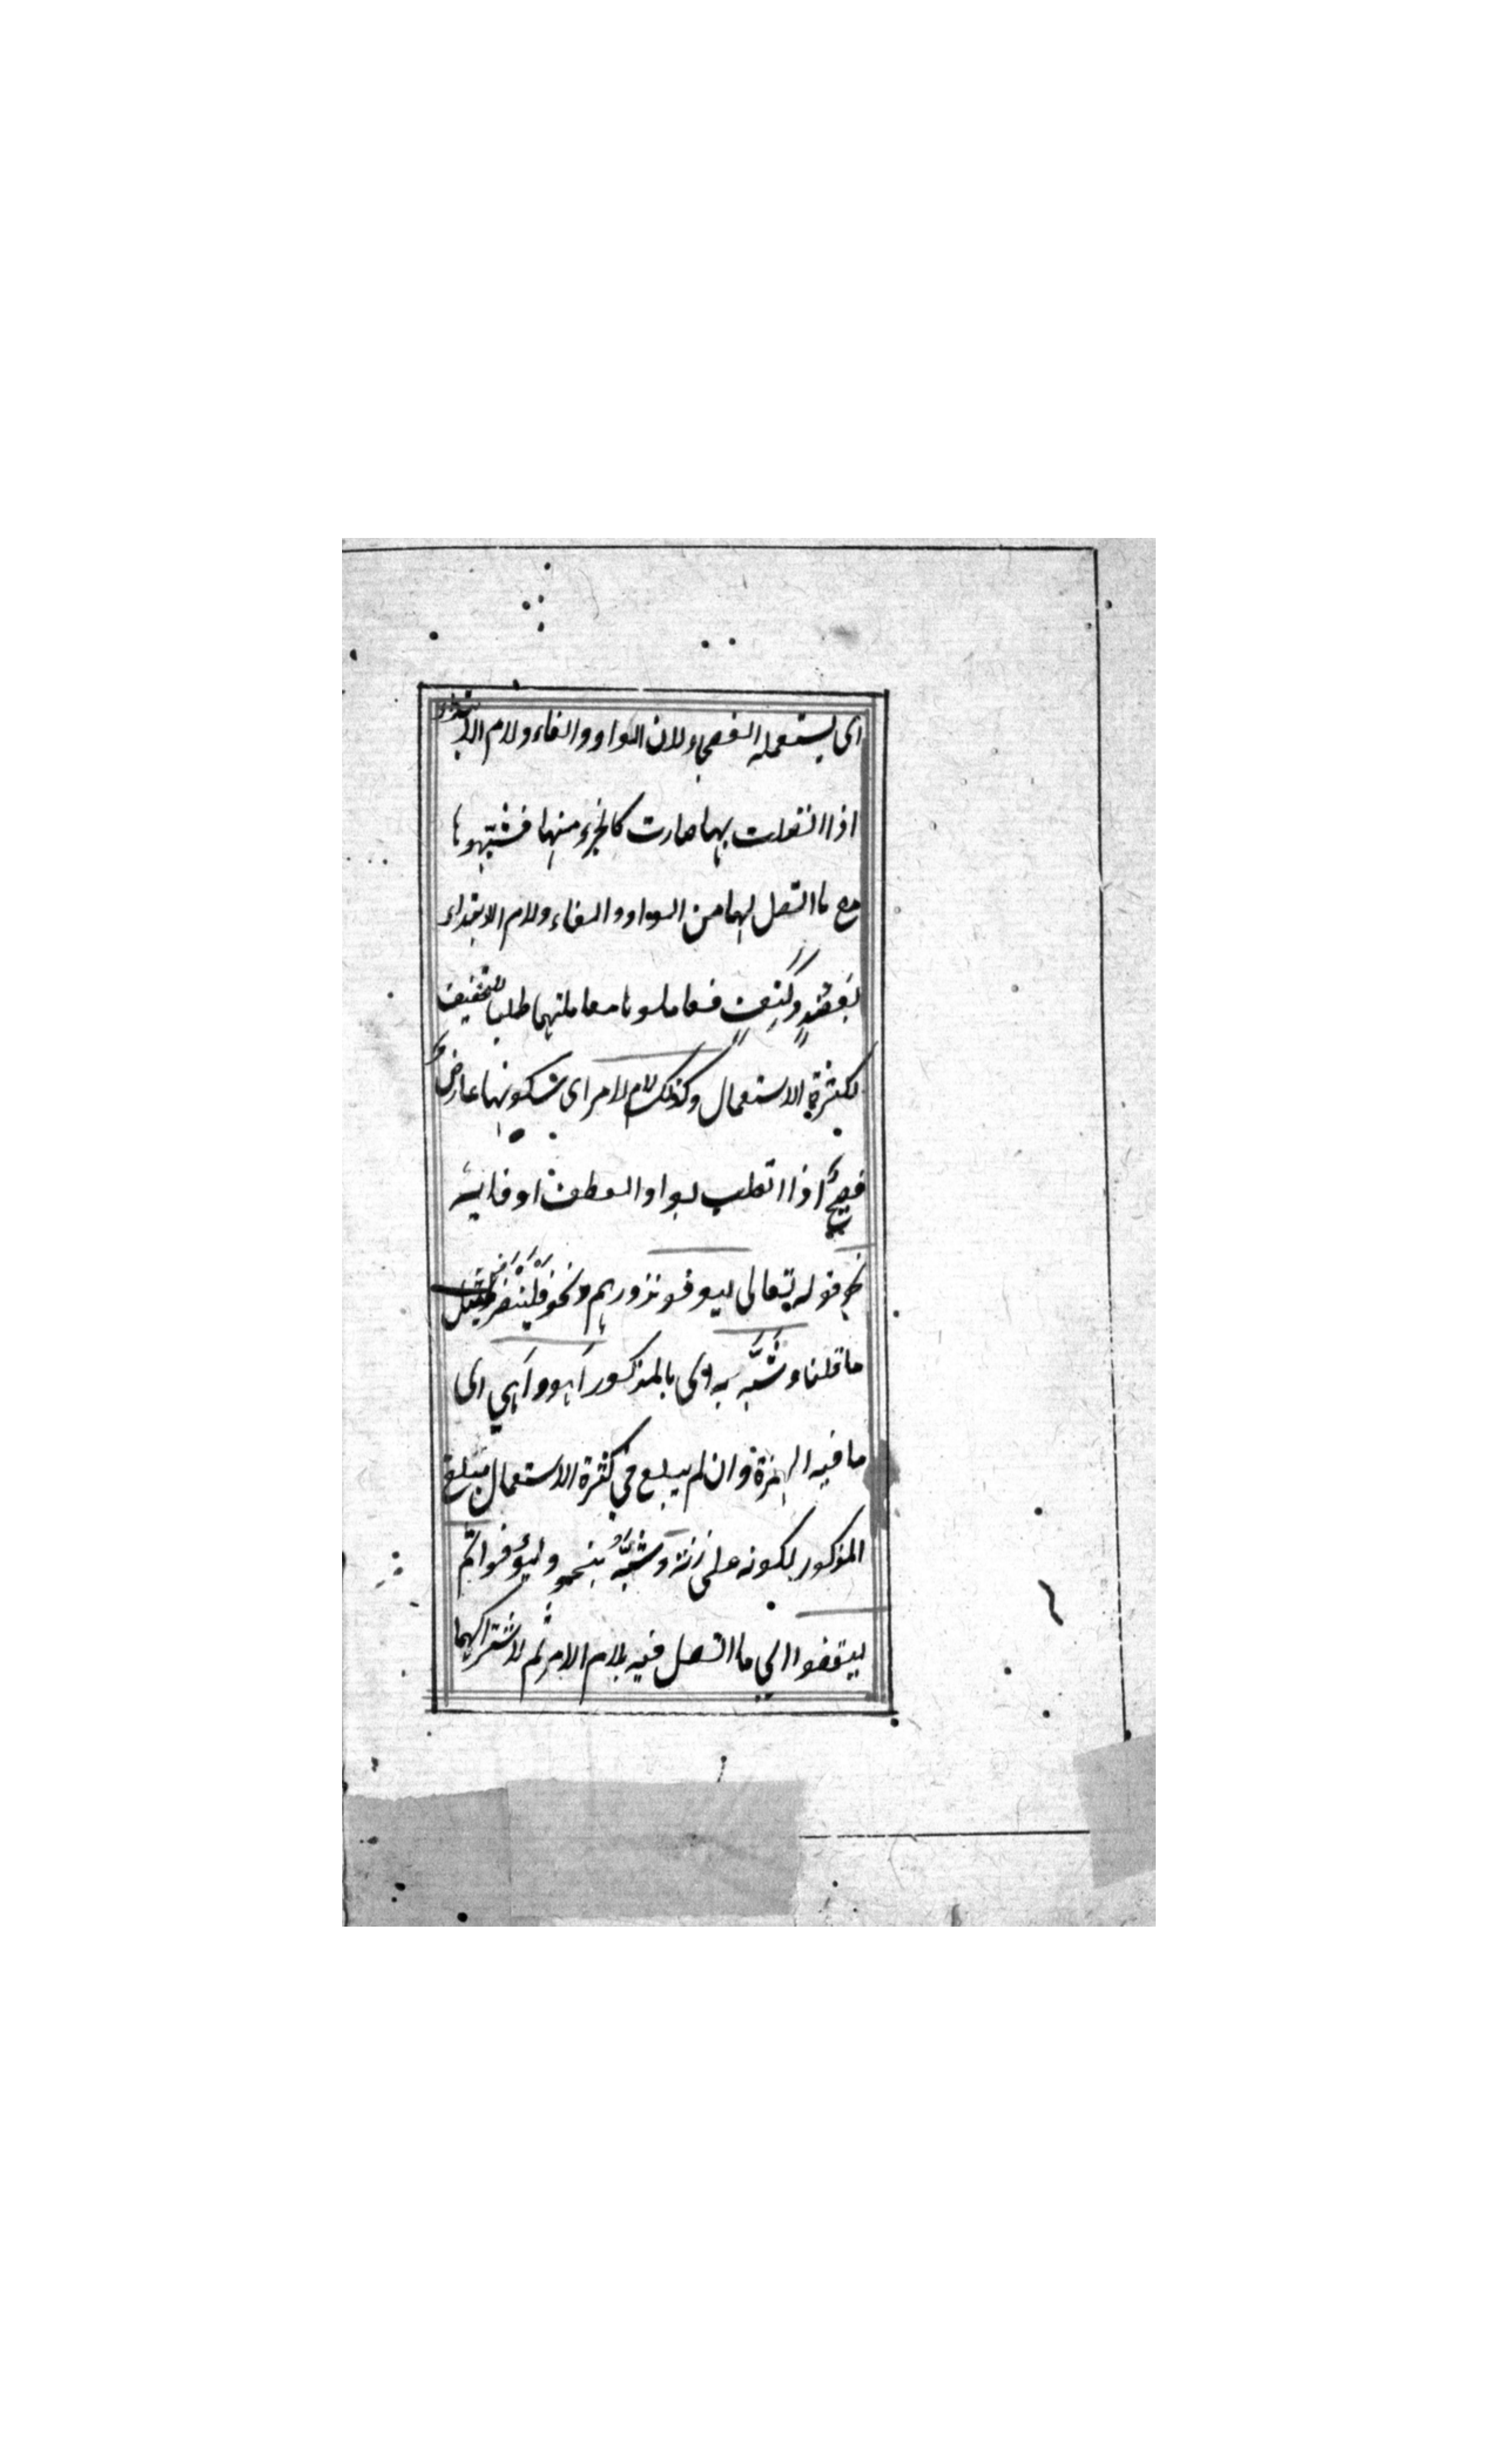 اى يستعمله الفصحاء ولان الواو والفاء ولام الابتداء
اذا اتصلت بهما صارت كالجزء منهما فشبّهوها
مع ما اتصل بهما من الواو والفاء ولام الابتداء
بعضد وكتف فعاملوها معاملتهما طلبا للتخفيف
لكثرة الاستعمال وكذلك لام الامر اى سكونها عارض
فصيح اذا اتصلت بواو العطف او فائه
نحو قوله تعالى ليوفوا نذورهم ونحو فلينظر
ما قلنا وشُبّه به اى بالمذكور أهو وأهي اى
ما فيه الهمزة وان لم يبلغ في كثرة الاستعمال مبلغ
المذكور لكونه على زنته وشبّه بنحو وليوفوا ثم
ليقضوا اى ما اتصل فيه بلام الامر ثم لاشتراكهما